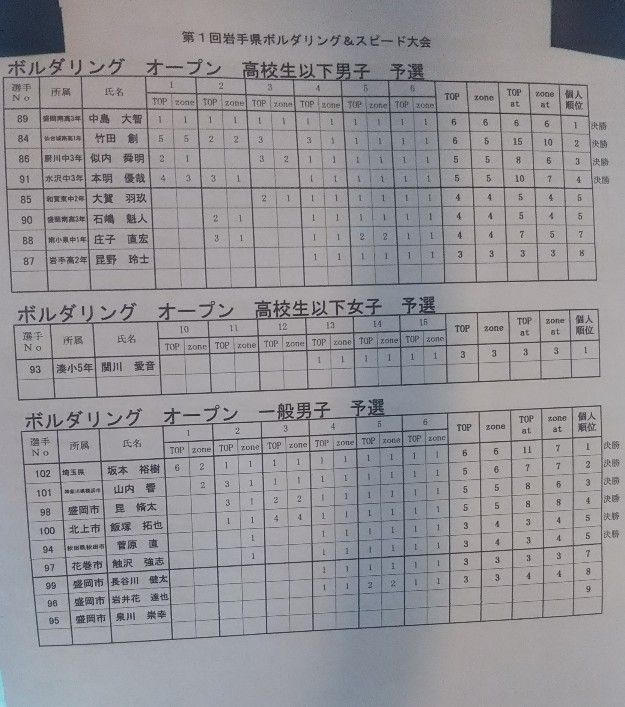 第1回岩手県ボルダリング＆スピード大会
ボルダリング　オープン　高校生以下男子　予選
選手No 所属 氏名 1 2 3 4 5 6 TOP zone TOP at zone at 個人順位
TOP zone TOP zone TOP zone TOP zone TOP zone TOP zone
89 盛岡南高3年 中島　大智 1 1 1 1 1 1 1 1 1 1 1 1 6 6 6 6 1 決勝
84 仙台城南高1年 竹田　創 5 5 2 2 3 3 1 1 1 1 1 6 5 15 10 2 決勝
86 厨川中3年 似内　舜明 2 1 3 2 1 1 1 1 1 1 5 5 8 6 3 決勝
91 水沢中3年 本明　優哉 4 3 3 1 1 1 1 1 1 1 5 5 10 7 4 決勝
85 和賀東中2年 大賀　羽玖 2 1 1 1 1 1 1 1 4 4 5 4 5
90 盛岡南高3年 石嶋　魁人 2 1 1 1 1 1 1 1 4 4 5 4 5
88 南小泉中1年 庄子　直宏 3 1 1 1 2 2 1 1 4 4 7 5 7
87 岩手高2年 昆野　玲士 1 1 1 1 1 1 3 3 3 3 8
ボルダリング　オープン　高校生以下女子　予選
選手No 所属 氏名 10 11 12 13 14 15 TOP zone TOP at zone at 個人順位
TOP zone TOP zone TOP zone TOP zone TOP zone TOP zone
93 湊小5年 関川　愛音 1 1 1 1 1 1 3 3 3 3 1
ボルダリング　オープン　一般男子　予選
選手No 所属 氏名 1 2 3 4 5 6 TOP zone TOP at zone at 個人順位
TOP zone TOP zone TOP zone TOP zone TOP zone TOP zone
102 埼玉県 坂本　裕樹 6 2 1 1 1 1 1 1 1 1 1 1 6 6 11 7 1 決勝
101 神奈川県横浜市 山内　響 2 3 1 1 1 1 1 1 1 1 1 5 6 7 7 2 決勝
98 盛岡市 昆　脩太 3 1 2 2 1 1 1 1 1 1 5 5 8 6 3 決勝
100 北上市 飯塚　拓也 1 1 4 4 1 1 1 1 1 1 5 5 8 8 4 決勝
94 秋田県秋田市 菅原　直 1 1 1 1 1 1 1 3 4 3 4 5 決勝
97 花巻市 触沢　強志 1 1 1 1 1 1 1 3 4 3 4 5 決勝
99 盛岡市 長谷川　健太 1 1 1 1 1 1 3 3 3 3 7
96 盛岡市 岩井花　達也 1 1 2 2 1 1 3 3 4 4 8
95 盛岡市 泉川　崇幸 9